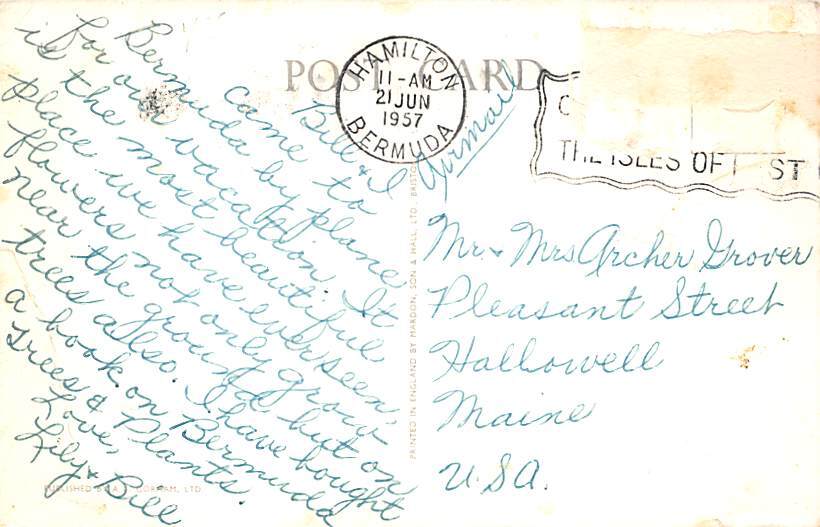 POST CARD
HAMILTON
11-AM
21 JUN
1957
BERMUDA
THE ISLES OF ST
Airmail
Bill & I
came to
Bermuda by plane
for our vacation. It
is the most beautiful
place we have ever seen.
flowers not only grow
near the ground but on
trees also. I have bought
a book on Bermuda
Trees & Plants.
Love,
Lily & Bill
Mr. & Mrs Archer Grover
Pleasant Street
Hallowell
Maine
U.S.A.
PRINTED IN ENGLAND BY MARDON, SON & HALL, LTD. BRISTO
PUBLISHED LTD.